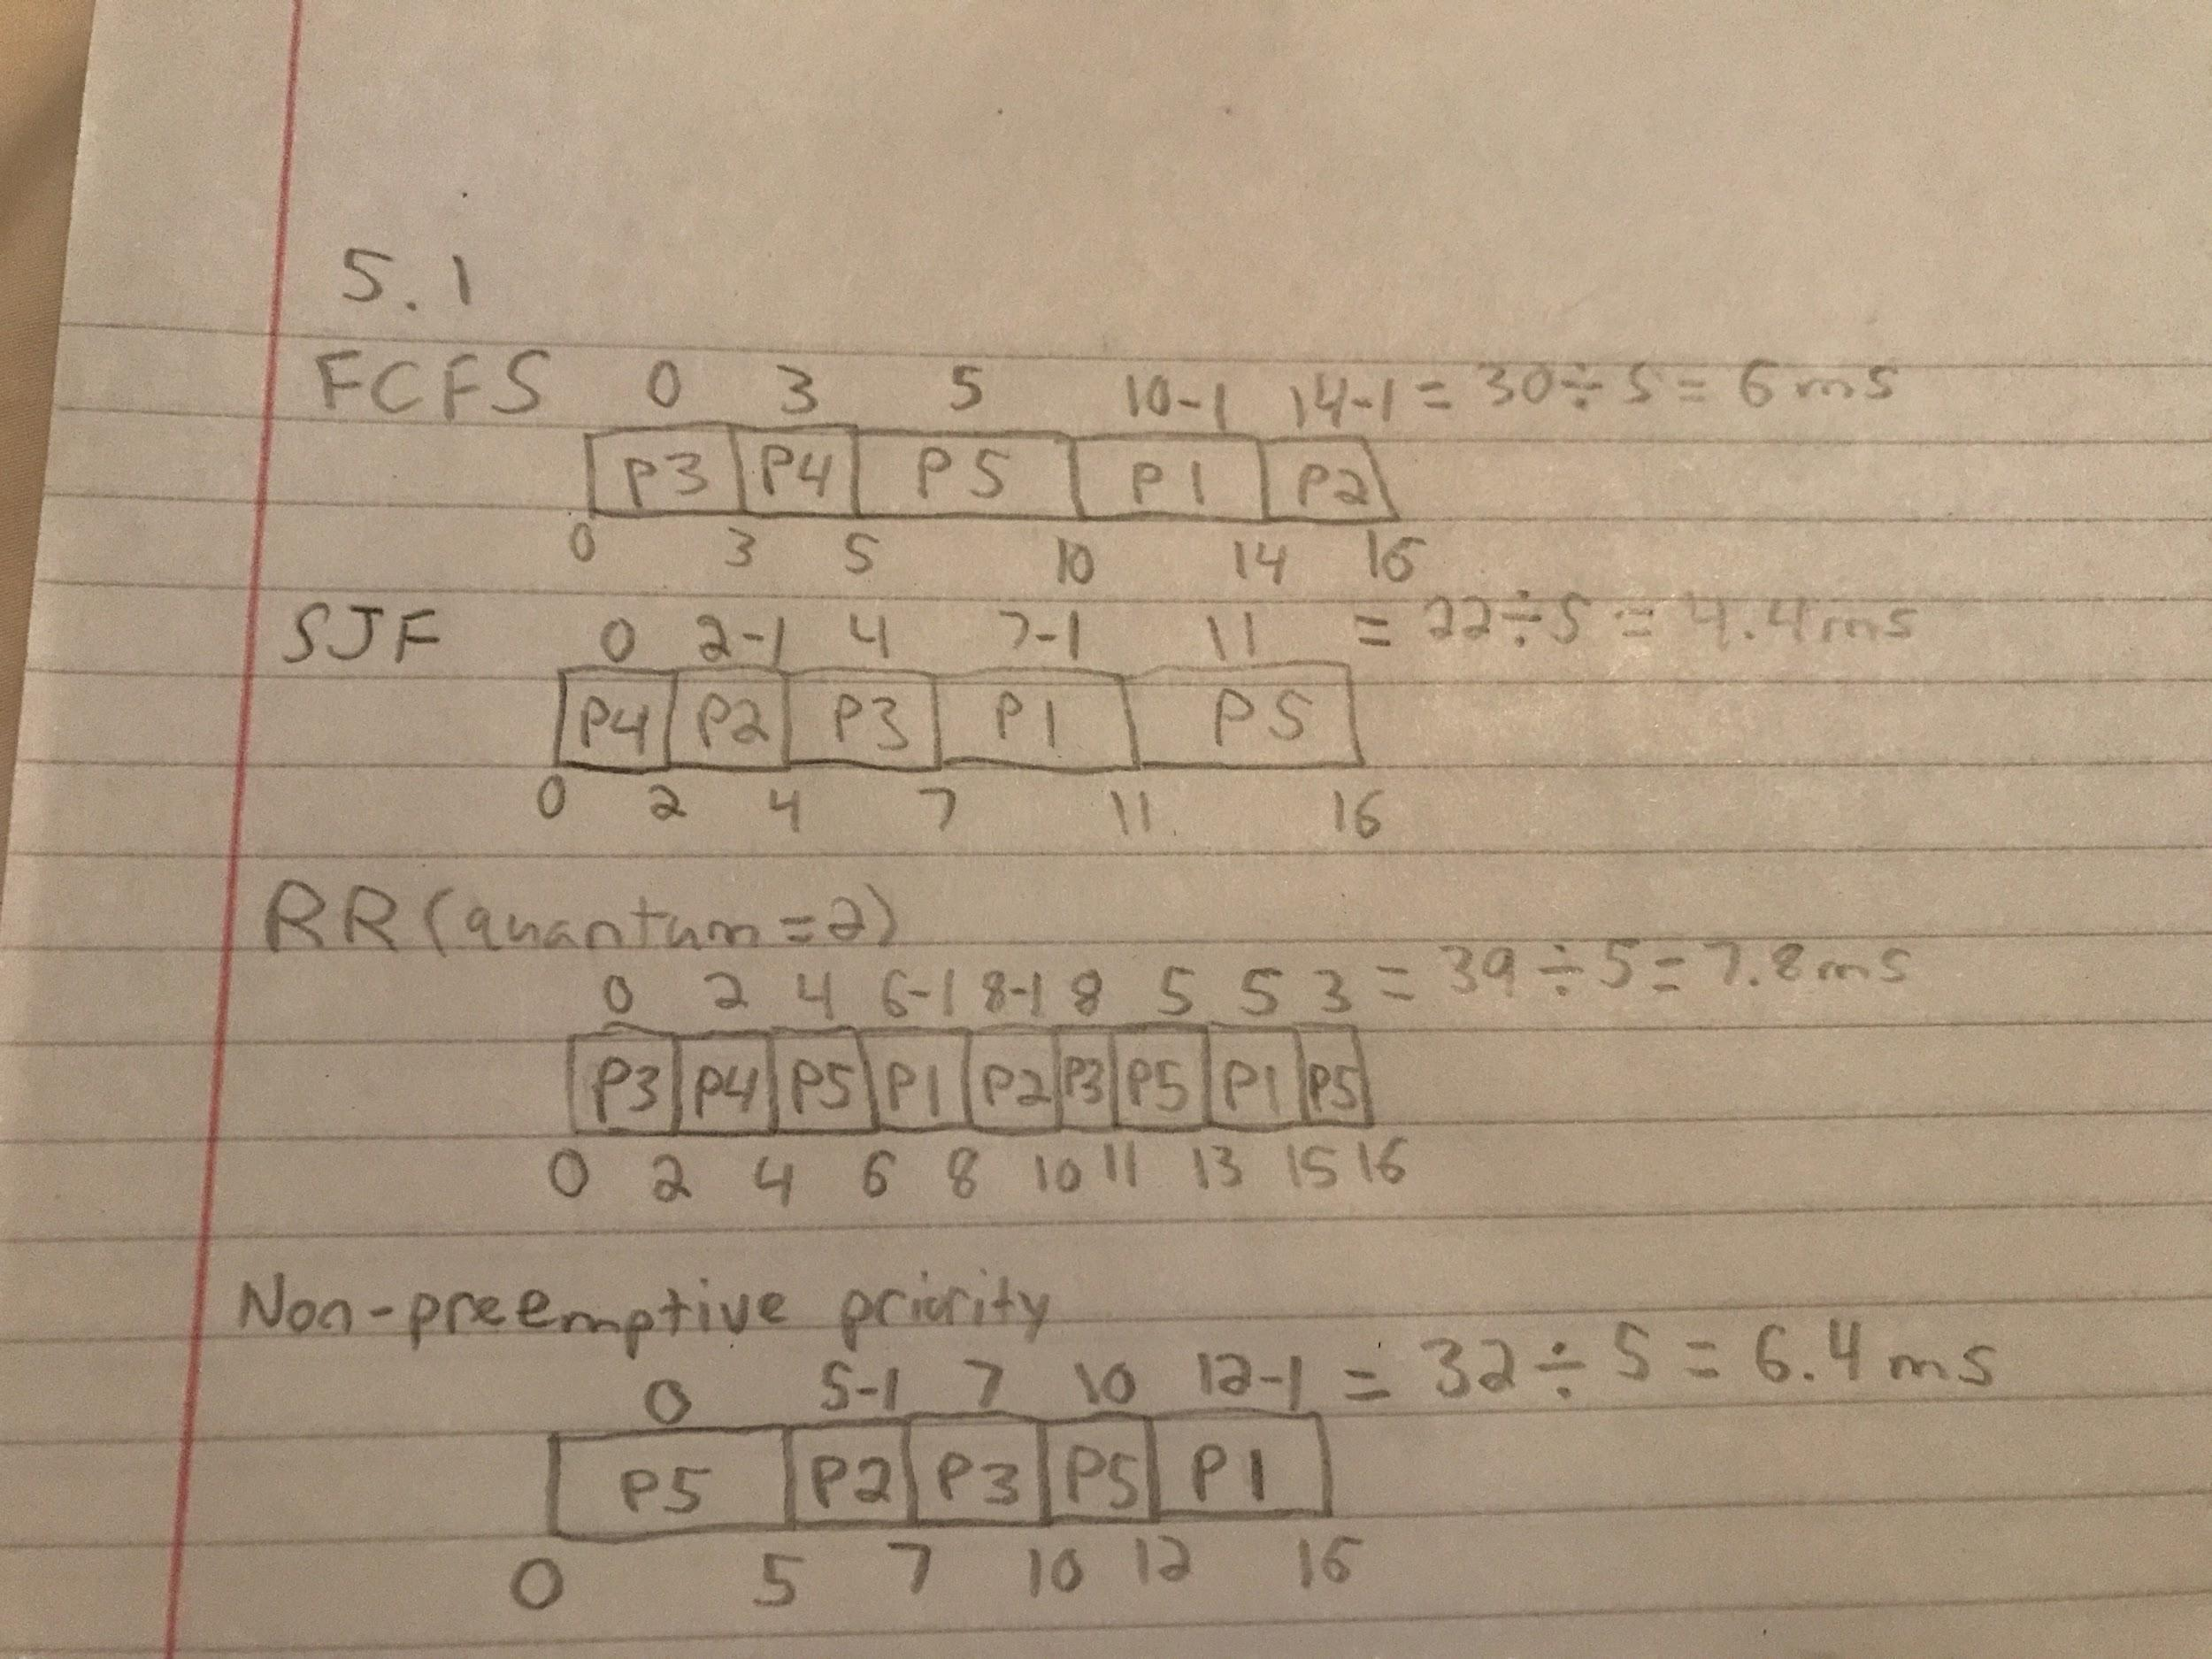 5.1
FCFS 0 3 5 10-1 14-1 = 30÷5 = 6ms
P3 P4 P5 P1 P2
0 3 5 10 14 16
SJF 0 2-1 4 7-1 11 = 22÷5 = 4.4ms
P4 P2 P3 P1 P5
0 2 4 7 11 16
RR (quantum=2)
0 2 4 6-1 8-1 8 5 5 3 = 39÷5=7.8ms
P3 P4 P5 P1 P2 P3 P5 P1 P5
0 2 4 6 8 10 11 13 15 16
Non-preemptive priority
0 5-1 7 10 12-1 = 32÷5 = 6.4ms
P5 P2 P3 P5 P1
0 5 7 10 12 16